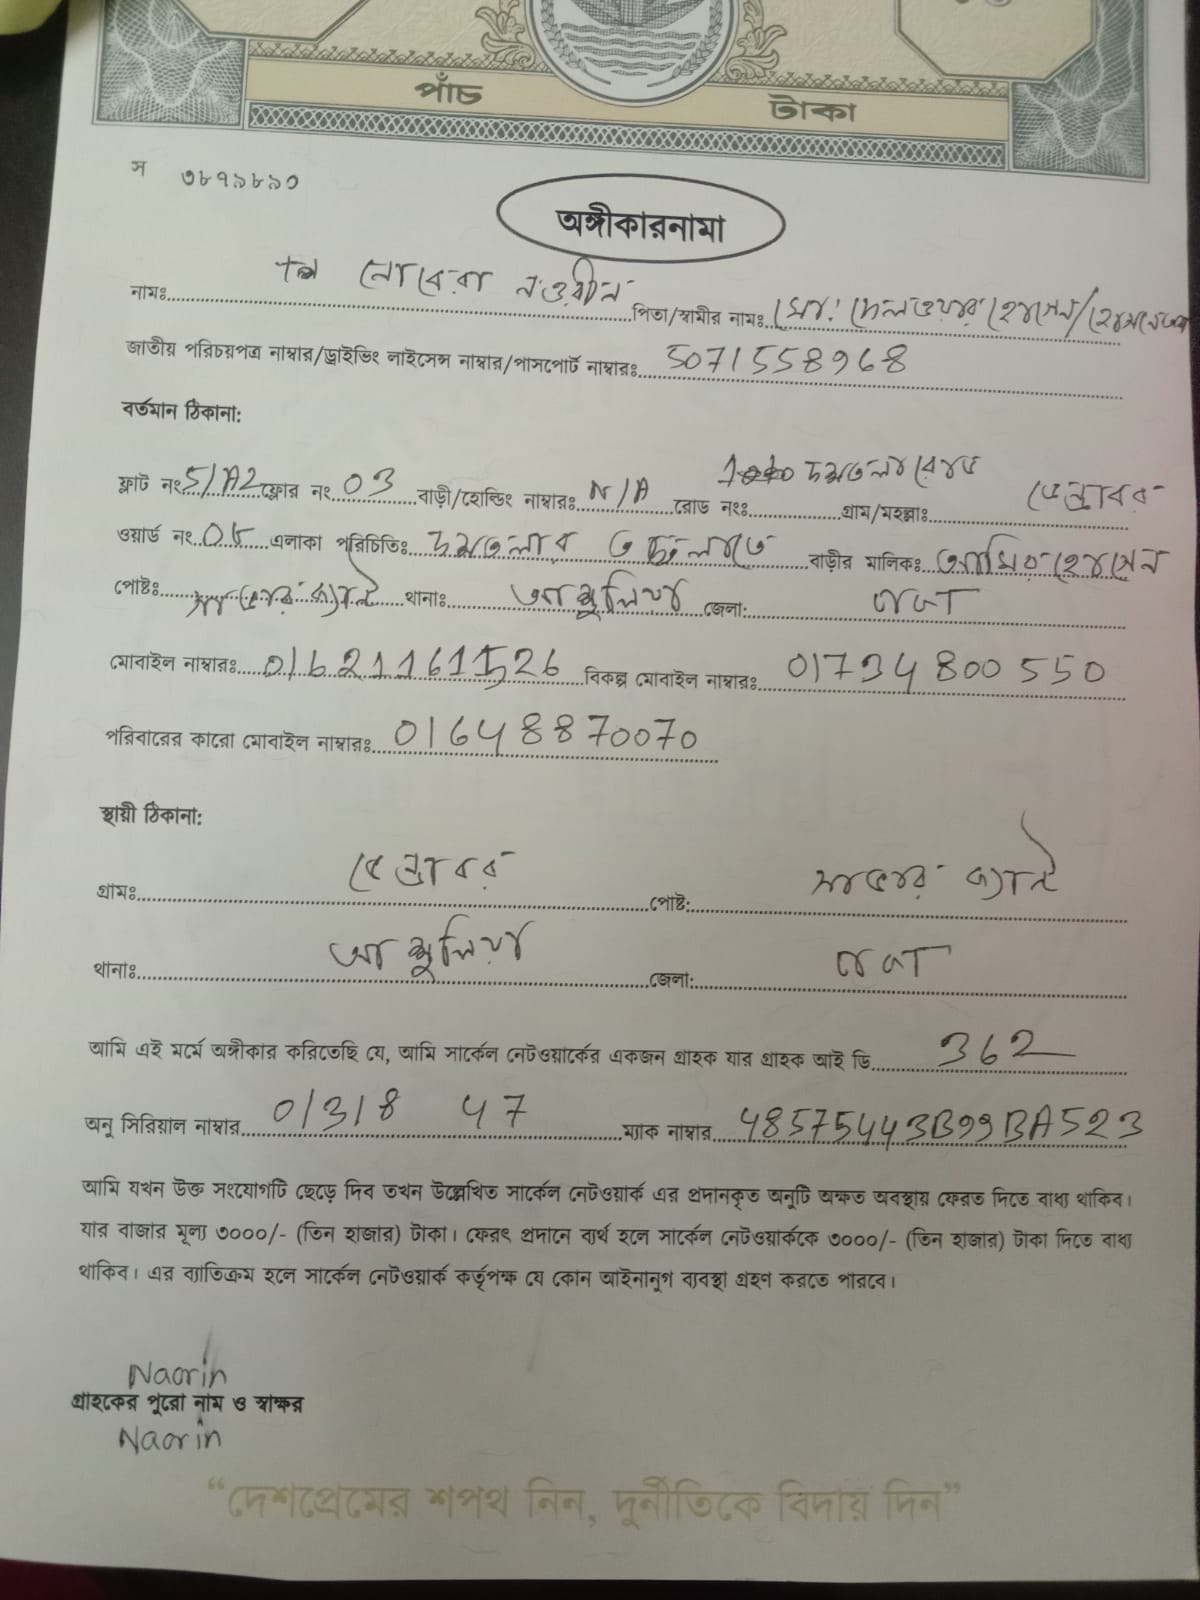 পাঁচ টাকা
স ৩৮৭৯৮৯০
অঙ্গীকারনামা
নামঃ নওরীন পিতা/স্বামীর নামঃ মো: দেলওয়ার হোসেন/
জাতীয় পরিচয়পত্র নাম্বার/ড্রাইভিং লাইসেন্স নাম্বার/পাসপোর্ট নাম্বারঃ 5071558968
বর্তমান ঠিকানা:
ফ্লাট নং 5/A2 ফ্লোর নং 03 বাড়ী/হোল্ডিং নাম্বারঃ N/A রোড নংঃ গ্রাম/মহল্লাঃ
ওয়ার্ড নং 05 এলাকা পরিচিতিঃ বাড়ীর মালিকঃ হোসেন
পোষ্টঃ থানাঃ আশুলিয়া জেলা: ঢাকা
মোবাইল নাম্বারঃ 01621161526 বিকল্প মোবাইল নাম্বারঃ 01734800550
পরিবারের কারো মোবাইল নাম্বারঃ 01648870070
স্থায়ী ঠিকানা:
গ্রামঃ পোষ্ট: সাভার ক্যান্ট
থানাঃ আশুলিয়া জেলা: ঢাকা
আমি এই মর্মে অঙ্গীকার করিতেছি যে, আমি সার্কেল নেটওয়ার্কের একজন গ্রাহক যার গ্রাহক আই ডি 362
অনু সিরিয়াল নাম্বার 01318 47 ম্যাক নাম্বার 48575443B99BA523
আমি যখন উক্ত সংযোগটি ছেড়ে দিব তখন উল্লেখিত সার্কেল নেটওয়ার্ক এর প্রদানকৃত অনুটি অক্ষত অবস্থায় ফেরত দিতে বাধ্য থাকিব।
যার বাজার মূল্য ৩০০০/- (তিন হাজার) টাকা। ফেরৎ প্রদানে ব্যর্থ হলে সার্কেল নেটওয়ার্ককে ৩০০০/- (তিন হাজার) টাকা দিতে বাধ্য
থাকিব। এর ব্যাতিক্রম হলে সার্কেল নেটওয়ার্ক কর্তৃপক্ষ যে কোন আইনানুগ ব্যবস্থা গ্রহণ করতে পারবে।
Naorin
গ্রাহকের পুরো নাম ও স্বাক্ষর
Naorin
“দেশপ্রেমের শপথ নিন, দুর্নীতিকে বিদায় দিন”